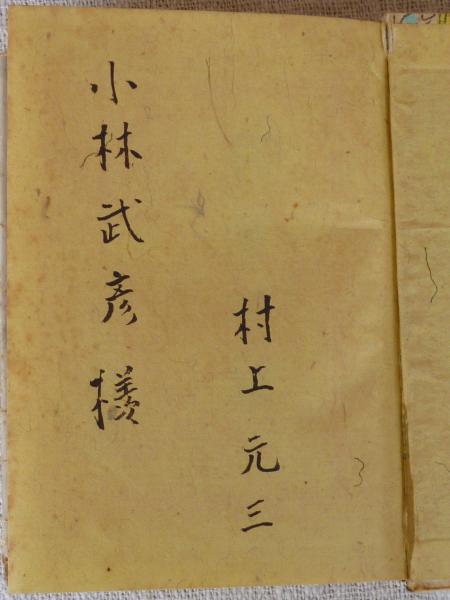 村上元三
小林武彦様